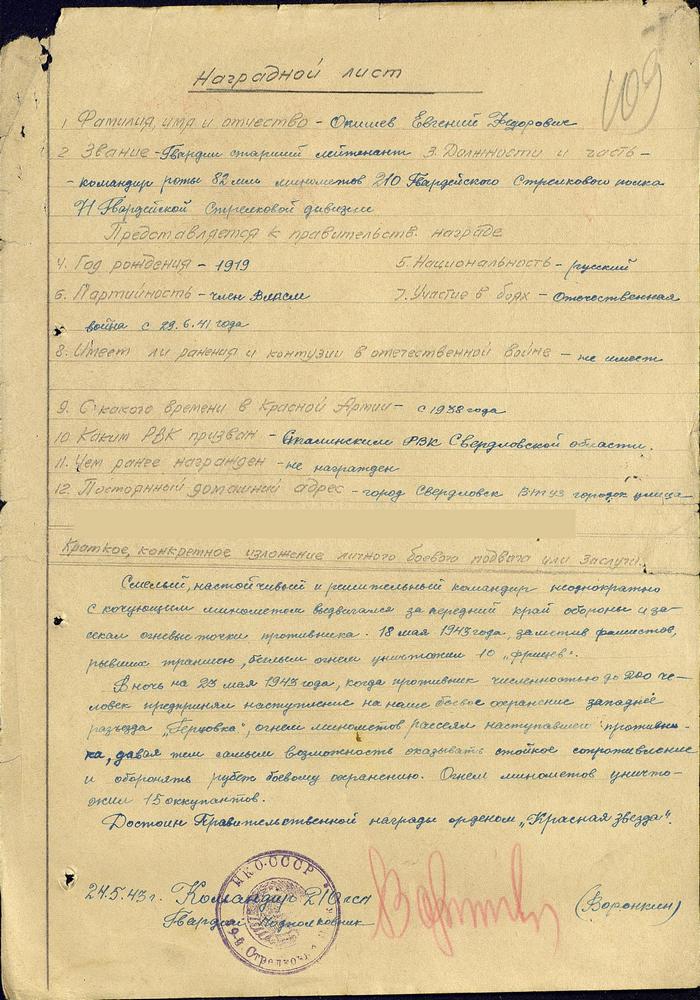 Наградной лист
109
1 Фамилия, имя и отчество – Опишев Евгений Федорович
2 Звание – Гвардии старший лейтенант 3. Должности и часть –
– командир роты 82 мм минометов 210 Гвардейского Стрелкового полка
71 Гвардейской Стрелковой дивизии
Представляется к правительств. награде
4. Год рождения – 1919 5. Национальность – русский
6. Партийность – член ВЛКСМ 7. Участие в боях – Отечественная
война с 29.6.41 года
8. Имеет ли ранения и контузии в отечественной войне – не имеет
9. С какого времени в Красной Армии – с 1938 года
10. Каким РВК призван – Сталинским РВК Свердловской области.
11. Чем ранее награжден – не награжден
12. Постоянный домашний адрес – город Свердловск Втузгородок улица
Краткое, конкретное изложение личного боевого подвига или заслуги.
Смелый, настойчивый и решительный командир неоднократно
с кочующим минометом выдвигался за передний край обороны и за-
секал огневые точки противника. 18 мая 1943 года, заметив фашистов,
рывших траншею, беглым огнем уничтожил 10 „фрицев".
В ночь на 23 мая 1943 года, когда противник численностью до 200 че-
ловек предпринял наступление на наше боевое охранение западнее
разъезда „Герцовка", огнем минометов рассеял наступавшего противни-
ка, давая тем самым возможность оказывать стойкое сопротивление
и оборонять рубеж боевому охранению. Огнем минометов уничто-
жил 15 оккупантов.
Достоин Правительственной награды орденом „Красная Звезда".
НКО-СССР
24.5.43 г. Командир 210 гсп
Гвардии Подполковник (Воронкин)
Стрелков